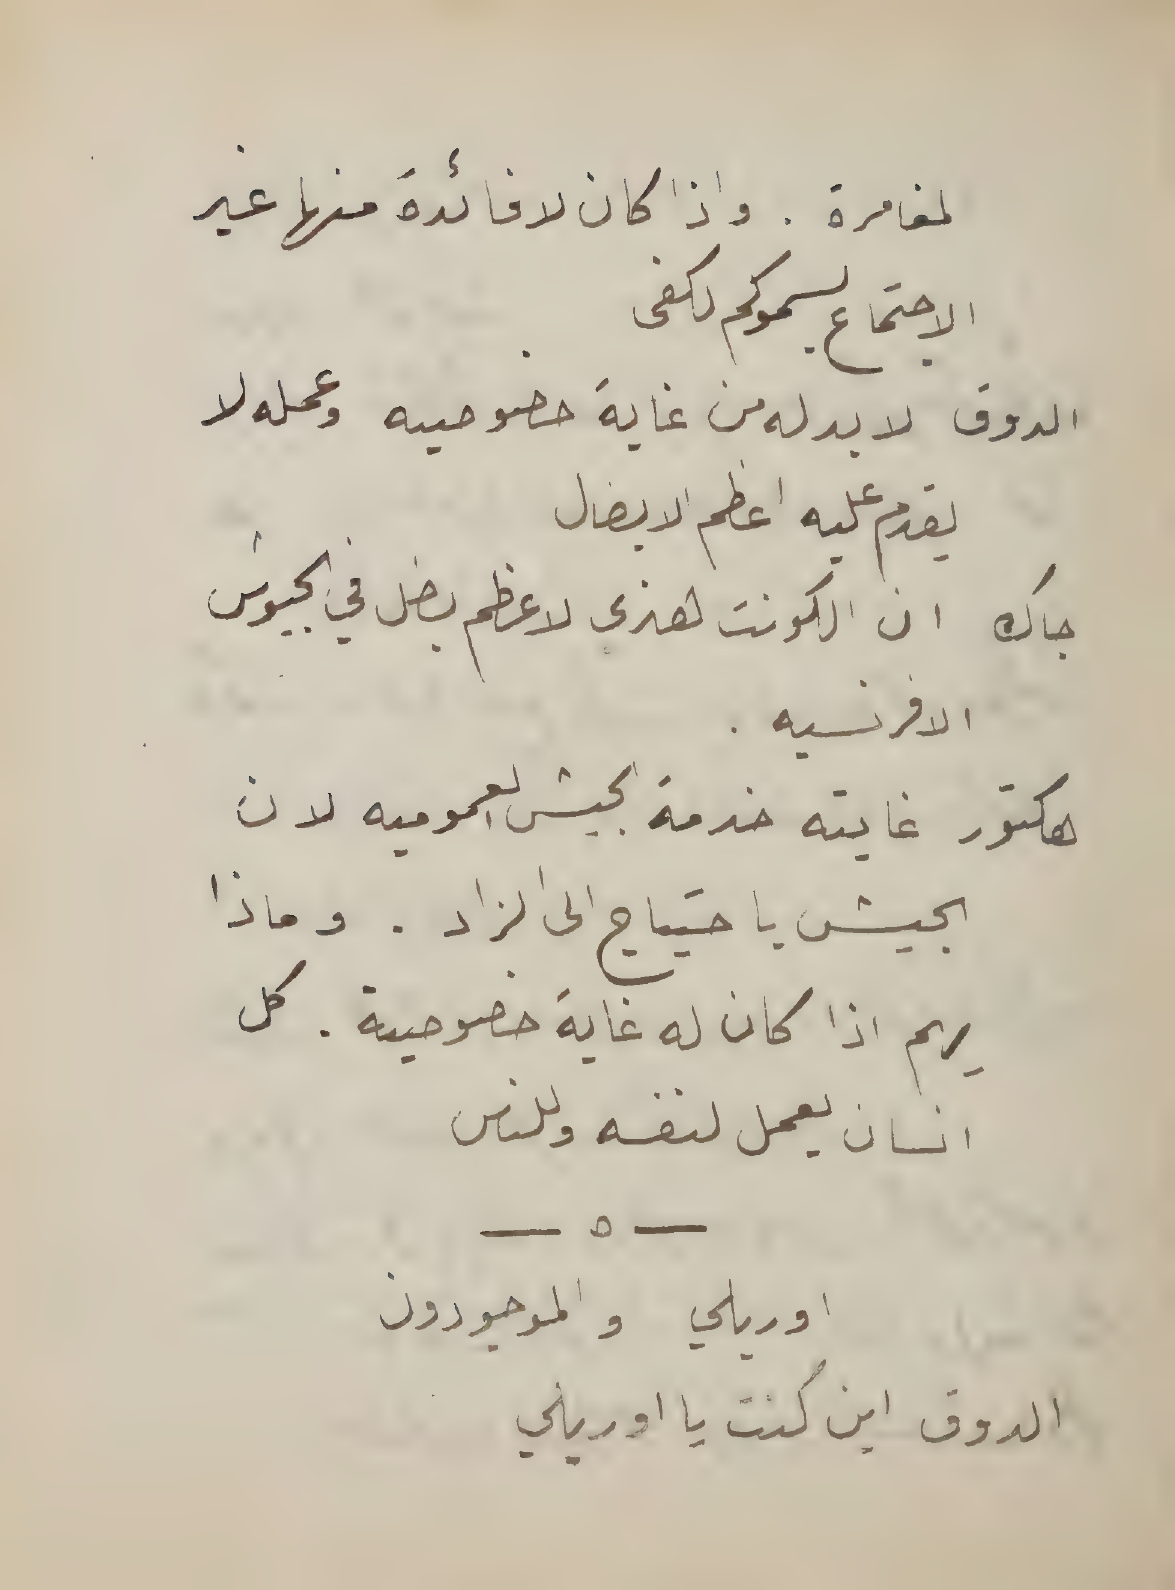 لمغامرة . واذا كان لا فائدة منها غير
الاجتماع بسموكم لكفى
الدوق لا بد له من غاية خصوصيه وعمله لا
يقدم عليه اعظم الابطال
جاك ان الكونت لهنري لاعظم بطل في الجيوش
الافرنسيه .
هكتور غايته خدمة الجيش العموميه لان
الجيش باحتياج الى الزاد . وماذا
يهم اذا كان له غاية خصوصية . كل
انسان يعمل لنفسه وللناس
— ٥ —
اوريلي والموجودون
الدوق اين كنت يا اوريلي